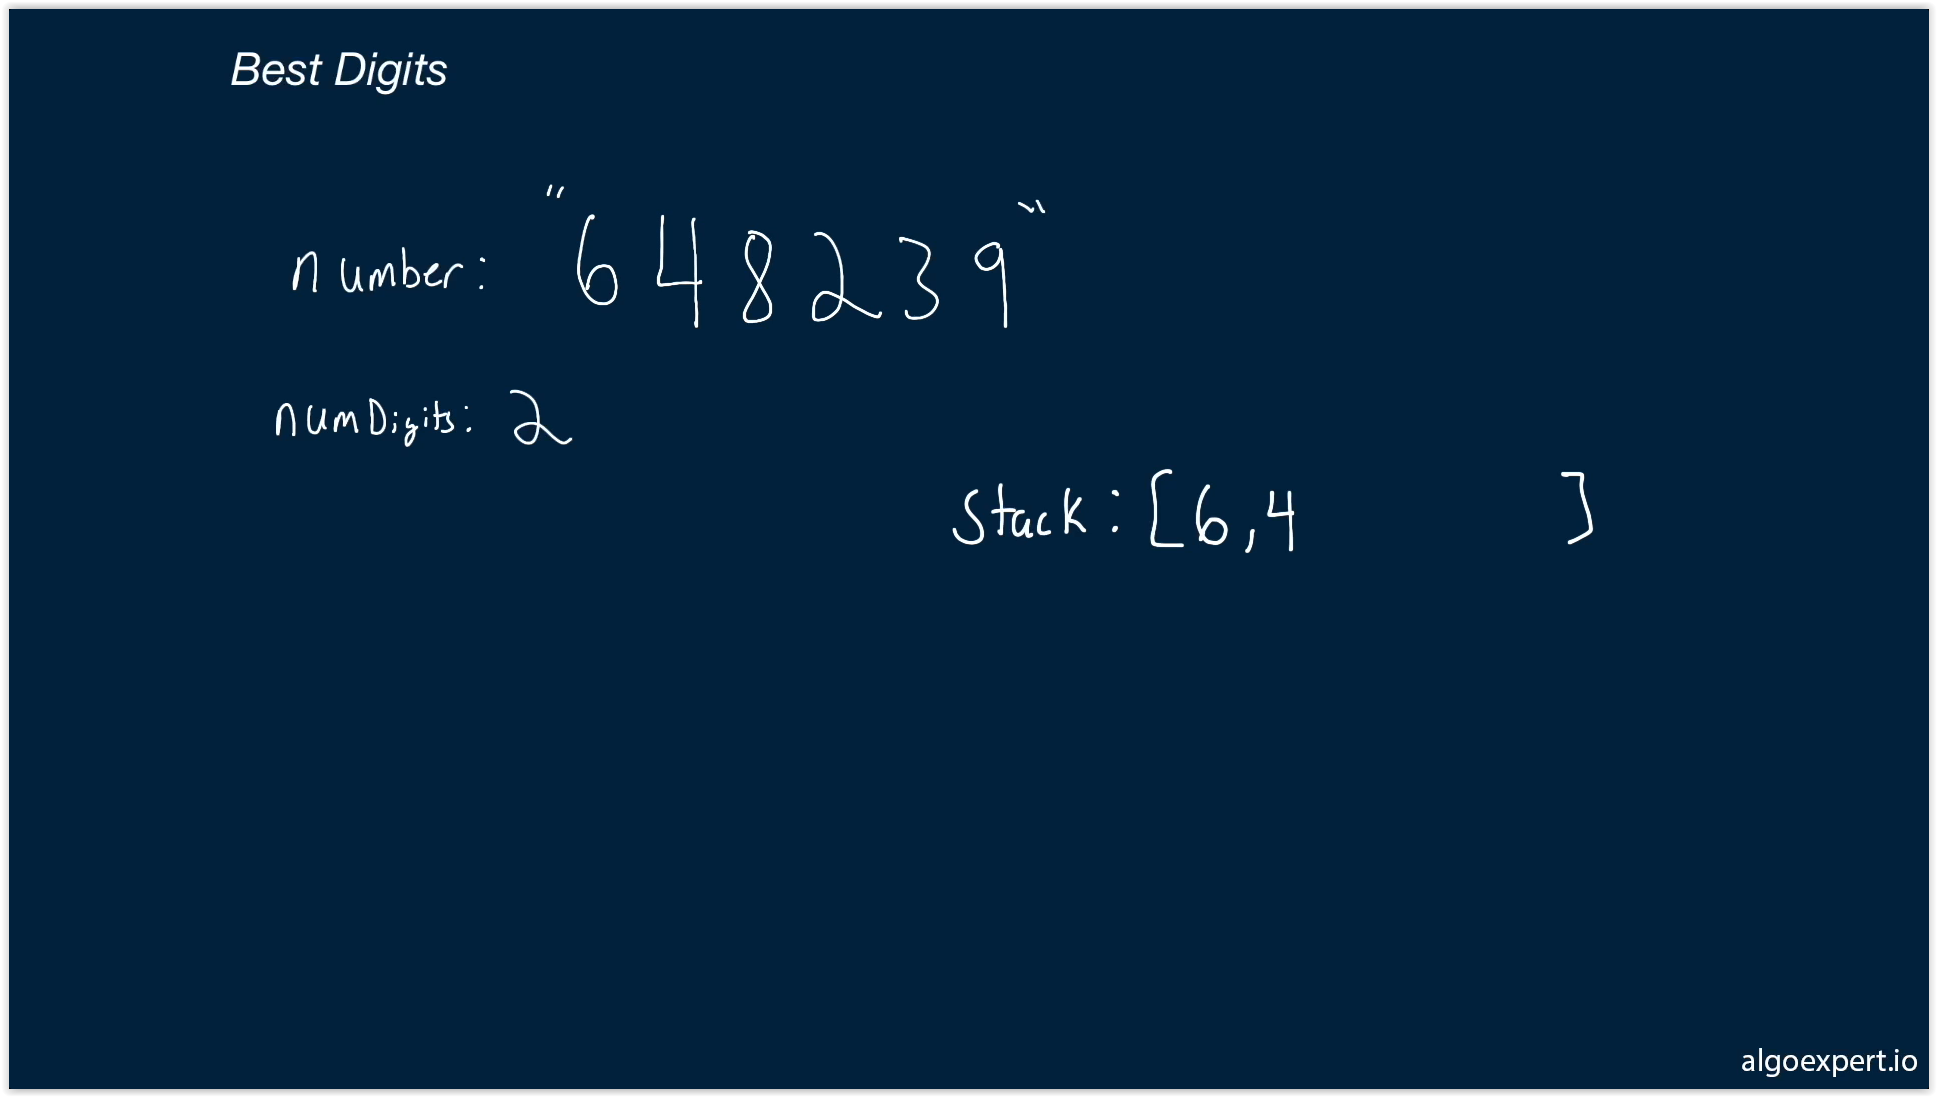 Best Digits
number: "648239"
numDigits: 2
Stack: [6,4 ]
algoexpert.io